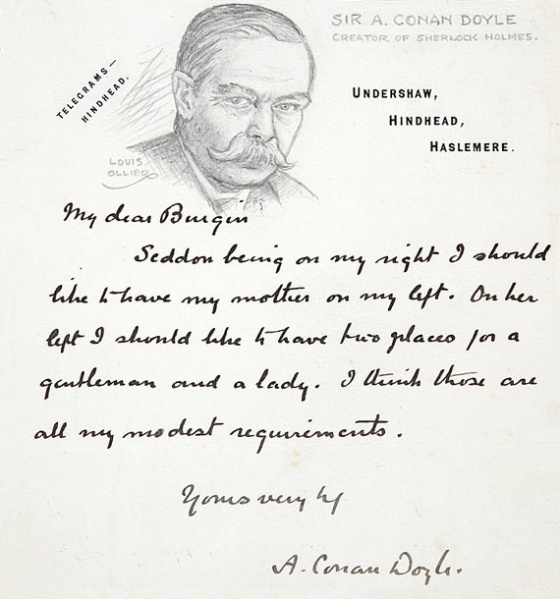 SIR A. CONAN DOYLE
CREATOR OF SHERLOCK HOLMES.
TELEGRAMS—
HINDHEAD.
UNDERSHAW,
HINDHEAD,
HASLEMERE.
LOUIS
OLLIER
My dear Burgin
Seddon being on my right I should
like to have my mother on my left. On her
left I should like to have two places for a
gentleman and a lady. I think those are
all my modest requirements.
Yours very
A. Conan Doyle.